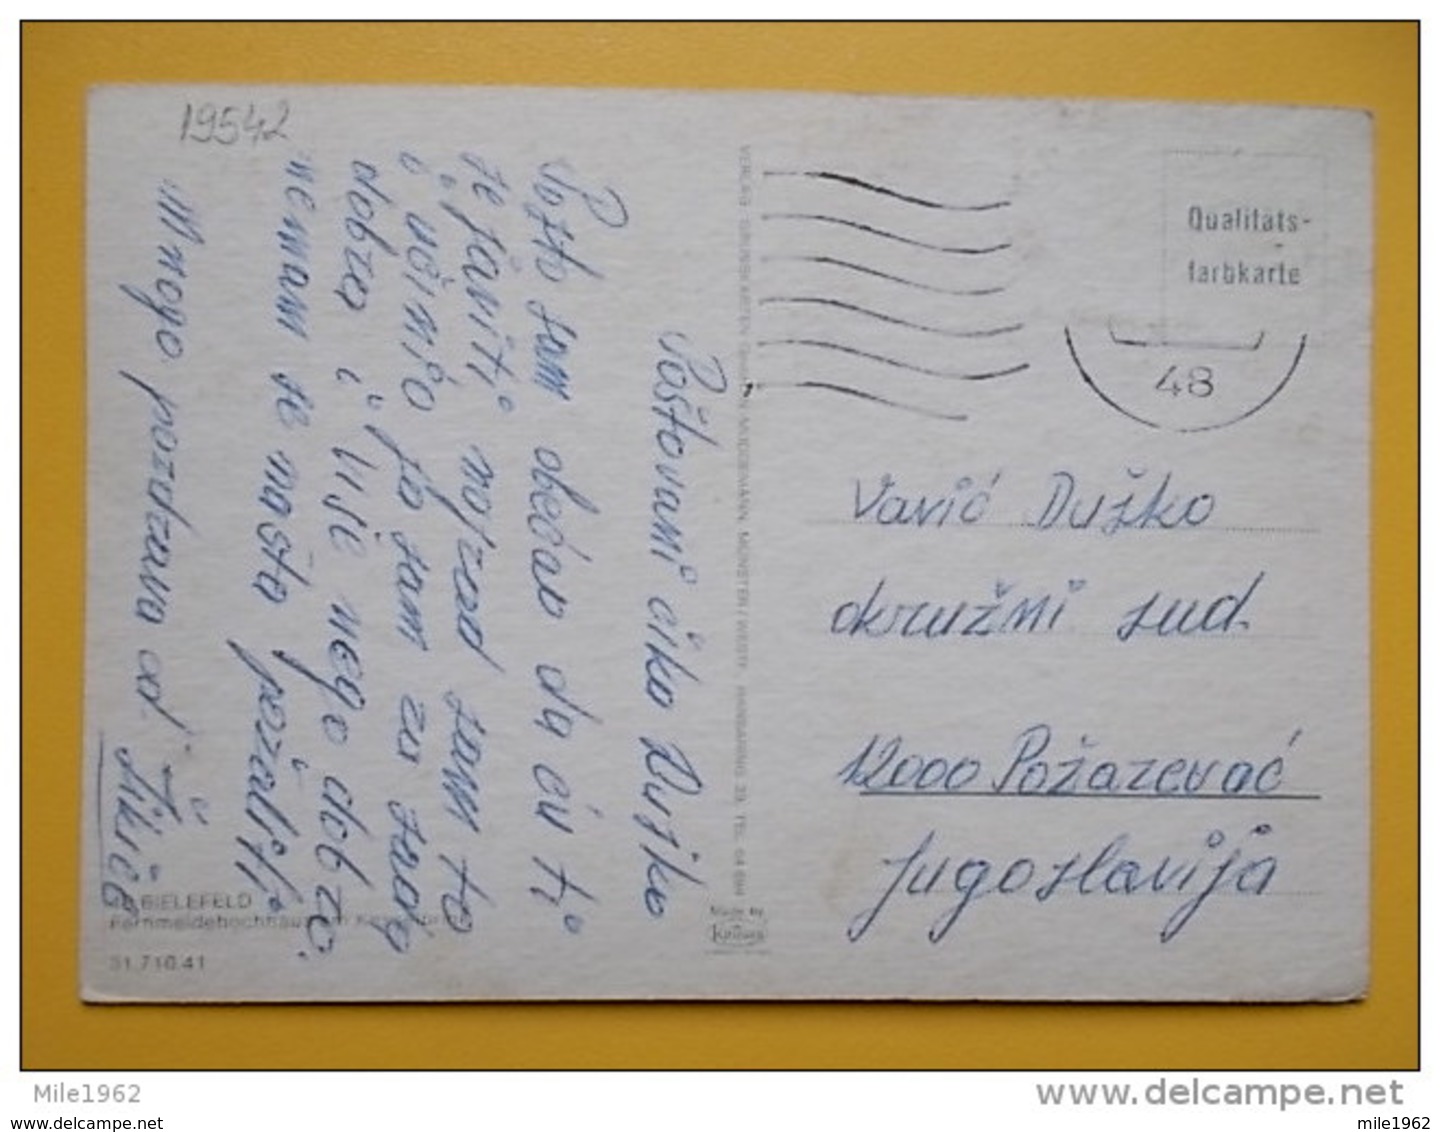 19542
Poštovani čiko Duško
Pošto sam obećao da ću ti
se javiti no/zad sam to
i učinio jo sam za svog
dobro i više nego dobro
nemam se našta požaliti
Mnogo pozdrava od Tikić
48 BIELEFELD
Fernmeldehochhaus am Kesselbrink
31.716.41
Made by
Krüger
Qualitäts-
farbkarte
48
Vavić Duško
okružni sud
12000 Požarevać
Jugoslavija
Mile1962
www.delcampe.net
mile1962
mile1962